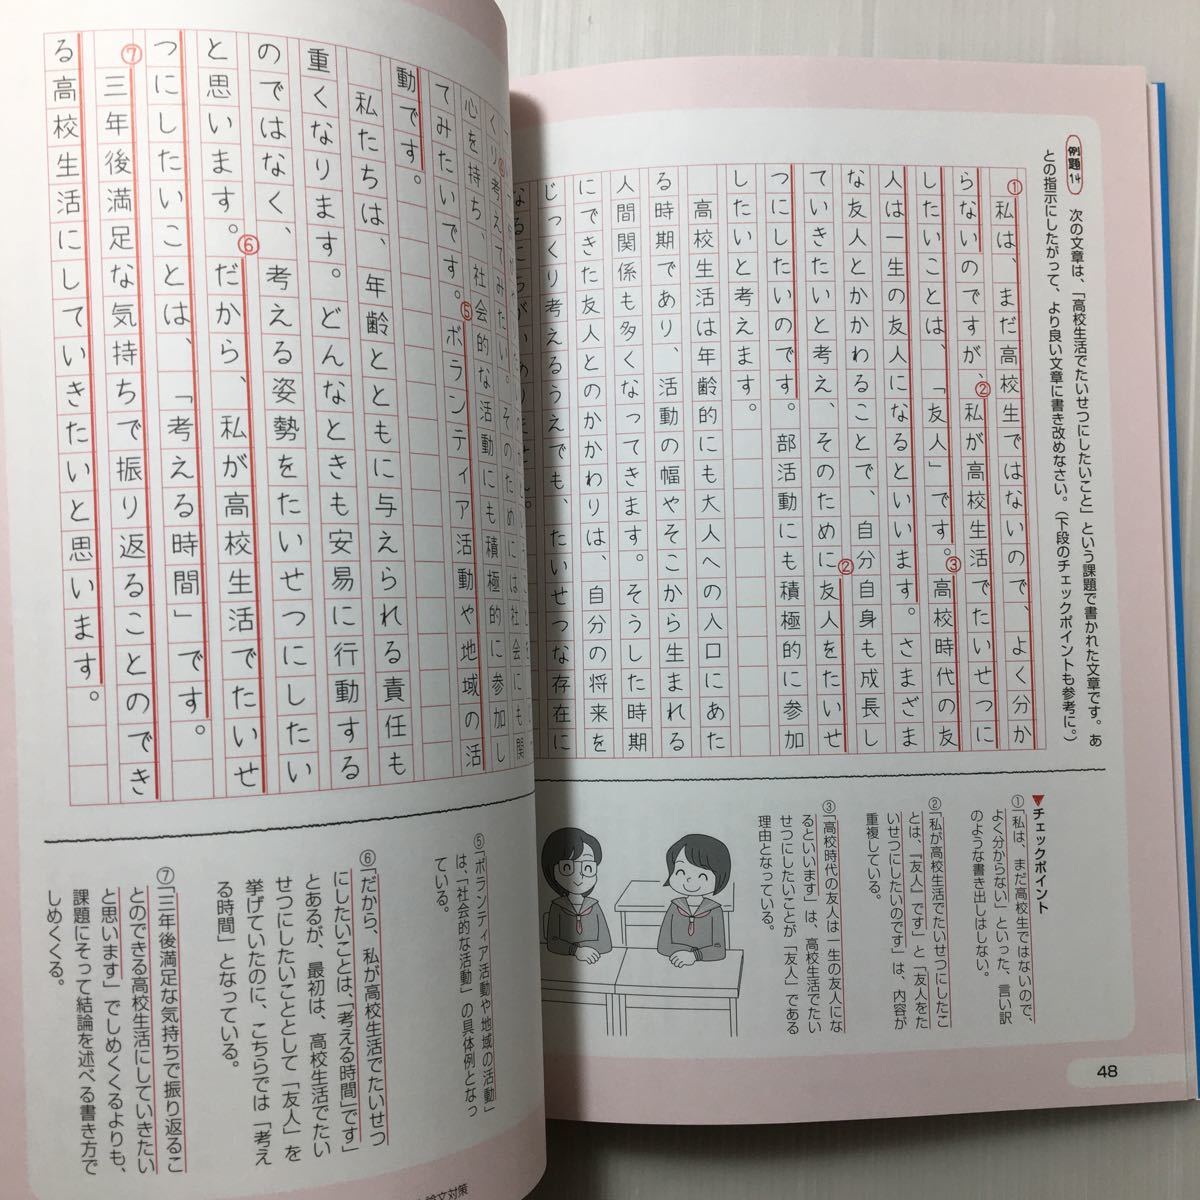 例題14
次の文章は、「高校生活でたいせつにしたいこと」という課題で書かれた文章です。あ
との指示にしたがって、より良い文章に書き改めなさい。（下段のチェックポイントも参考に。）
①私は、まだ高校生ではないので、よく分か
らないのですが、②私が高校生活でたいせつに
したいことは、「友人」です。③高校時代の友
人は一生の友人になるといいます。さまざま
な友人とかかわることで、自分自身も成長し
ていきたいと考え、そのために②友人をたいせ
つにしたいのです。部活動にも積極的に参加
したいと考えます。
高校生活は年齢的にも大人への入口にあた
る時期であり、活動の幅やそこから生まれる
人間関係も多くなってきます。そうした時期
にできた友人とのかかわりは、自分の将来を
じっくり考えるうえでも、たいせつな存在に
▼チェックポイント
①「私は、まだ高校生ではないので、
よく分からない」といった、言い訳
のような書き出しはしない。
②「私が高校生活でたいせつにしたこ
とは、『友人』です」と「友人をた
いせつにしたいのです」は、内容が
重複している。
③「高校時代の友人は一生の友人にな
るといいます」は、高校生活でたい
せつにしたいことが「友人」である
理由となっている。
48
くり考えてみたい。そのためには社会にも関
心を持ち、社会的な活動にも積極的に参加し
てみたいです。⑤ボランティア活動や地域の活
動です。
私たちは、年齢とともに与えられる責任も
重くなります。どんなときも安易に行動する
のではなく、考える姿勢をたいせつにしたい
と思います。⑥だから、私が高校生活でたいせ
つにしたいことは、「考える時間」です。
⑦三年後満足な気持ちで振り返ることのでき
る高校生活にしていきたいと思います。
⑤「ボランティア活動や地域の活動」
は、「社会的な活動」の具体例となっ
ている。
⑥「だから、私が高校生活でたいせつ
にしたいことは、「考える時間」です」
とあるが、最初は、高校生活でたい
せつにしたいこととして「友人」を
挙げていたのに、こちらでは「考え
る時間」となっている。
⑦「三年後満足な気持ちで振り返るこ
とのできる高校生活にしていきたい
と思います」でしめくくるよりも、
課題にそって結論を述べる書き方で
しめくくる。
論文対策